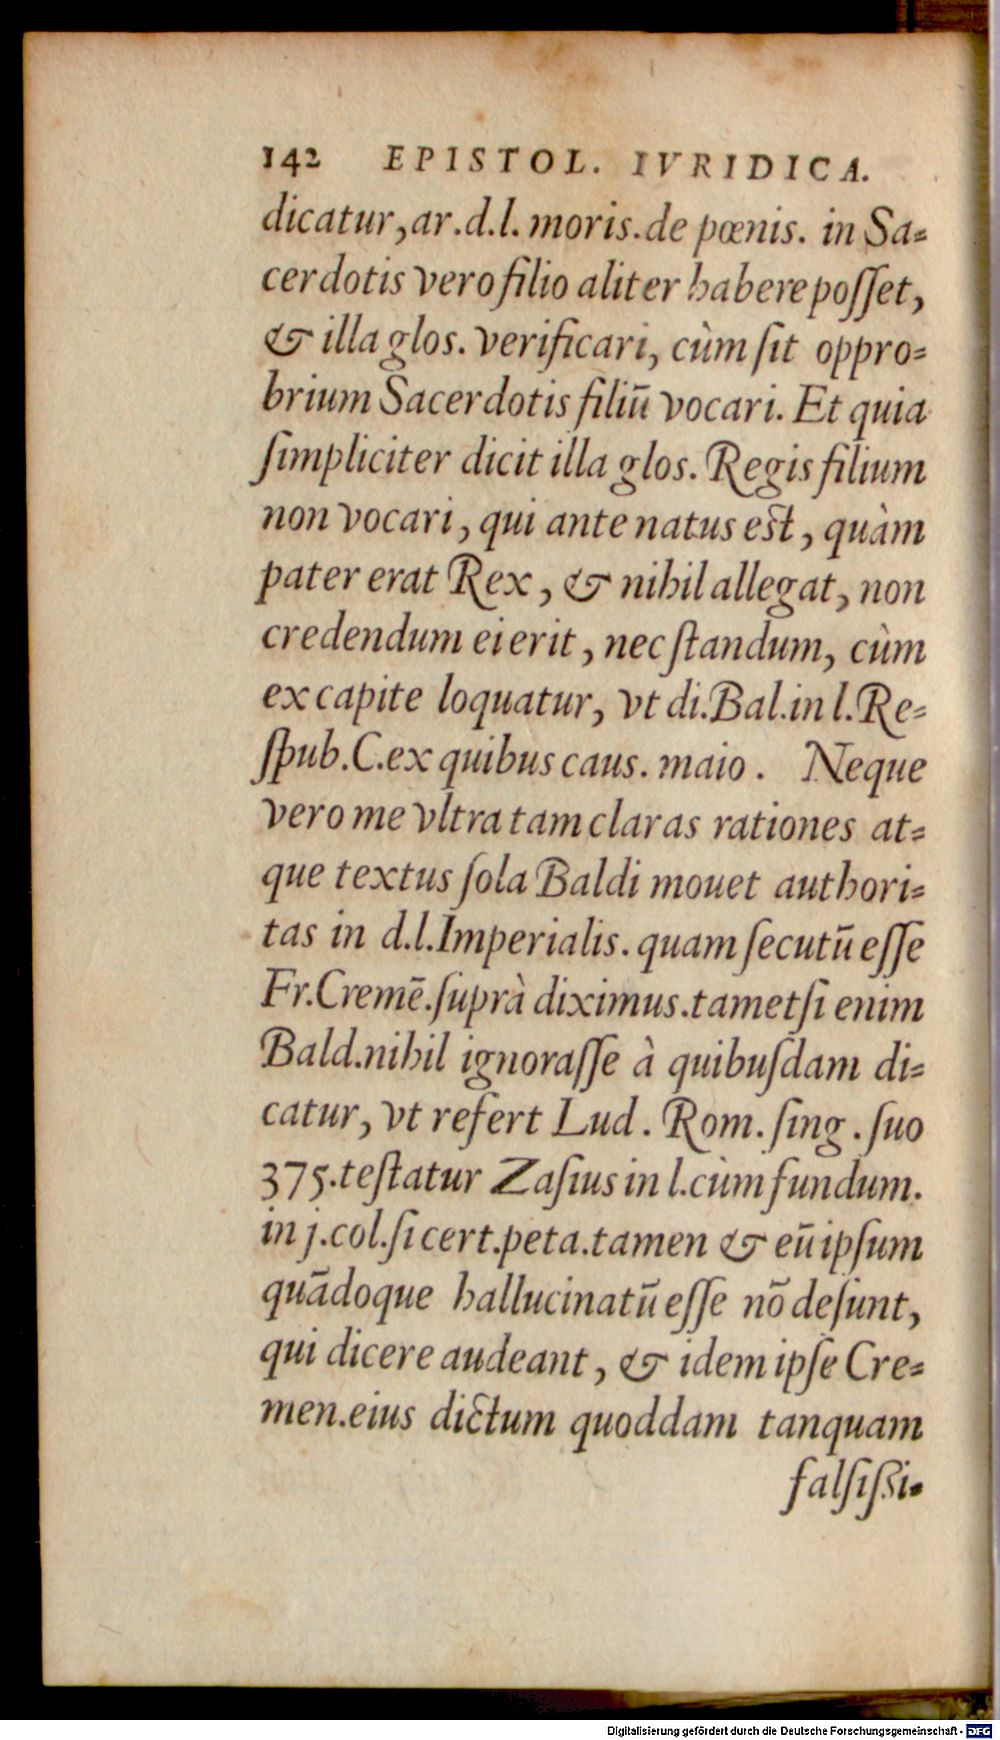 142 EPISTOL. IVRIDICA.
dicatur, ar. d. l. moris. de pœnis. in Sa-
cerdotis vero filio aliter habere poſſet,
& illa glos. verificari, cùm ſit oppro-
brium Sacerdotis filiū vocari. Et quia
ſimpliciter dicit illa glos. Regis filium
non vocari, qui ante natus est, quàm
pater erat Rex, & nihil allegat, non
credendum ei erit, nec ſtandum, cùm
ex capite loquatur, vt di. Bal. in l. Re-
ſpub. C. ex quibus caus. maio. Neque
vero me vltra tam claras rationes at-
que textus ſola Baldi mouet authori-
tas in d. l. Imperialis. quam ſecutū eſſe
Fr. Cremē. ſuprà diximus. tametſi enim
Bald. nihil ignoraſſe à quibuſdam di-
catur, vt refert Lud. Rom. ſing. ſuo
375. teſtatur Zaſius in l. cùm fundum.
in j. col. ſi cert. peta. tamen & eū ipſum
quādoque hallucinatū eſſe nō deſunt,
qui dicere audeant, & idem ipſe Cre-
men. eius dictum quoddam tanquam
falſiſſi-
Digitalisierung gefördert durch die Deutsche Forschungsgemeinschaft - DFG